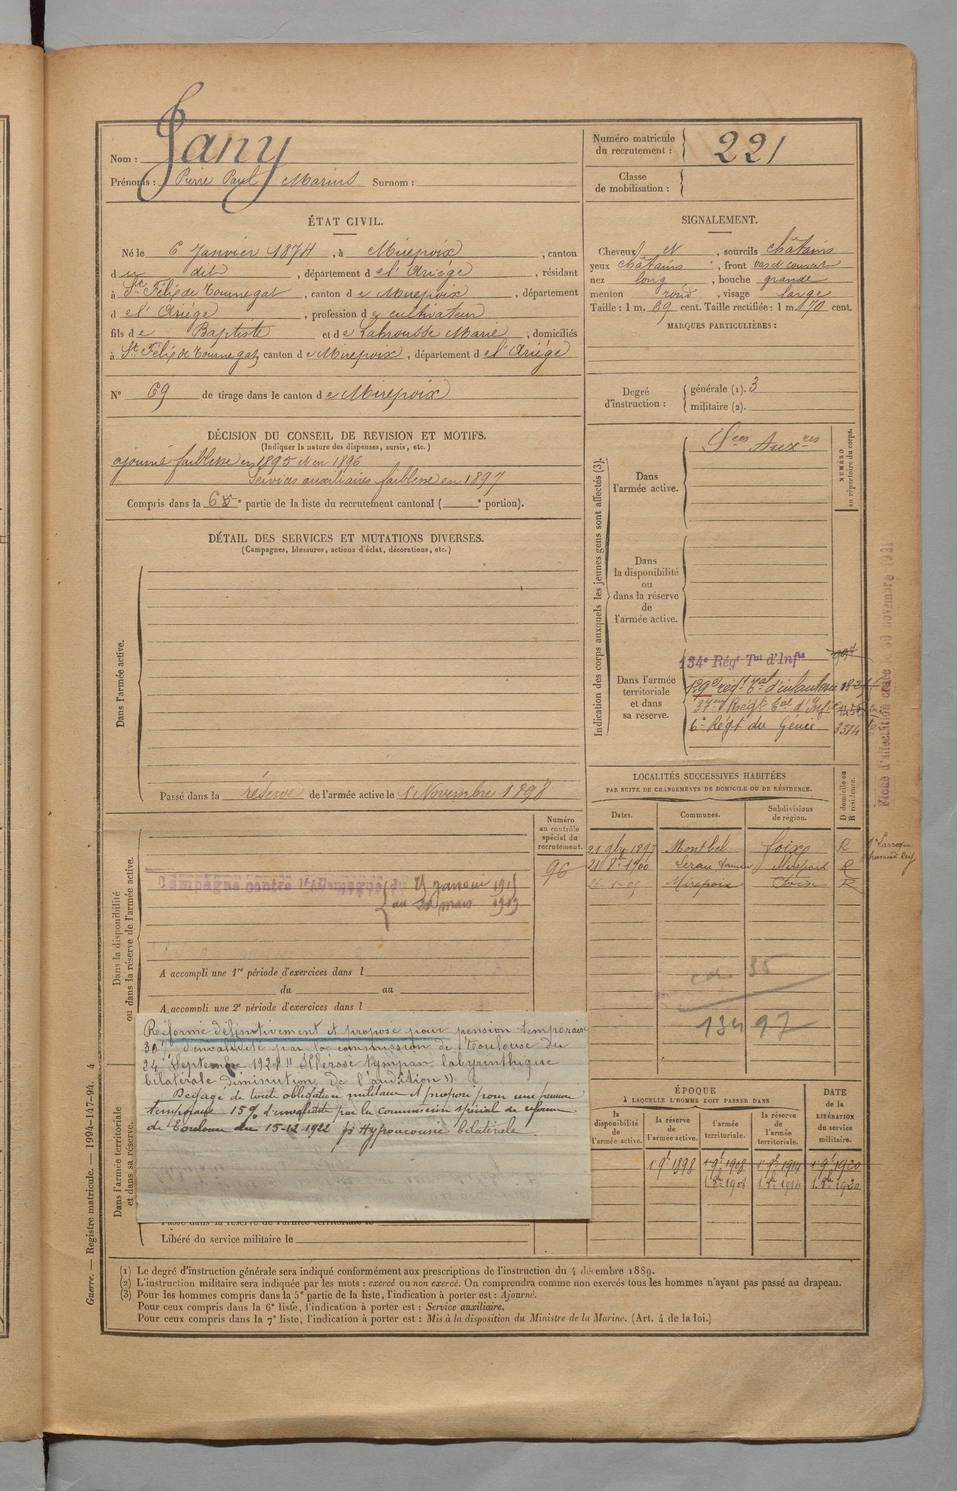 Nom : Jany
Prénoms : Pierre Paul Marius Surnom :
Numéro matricule du recrutement : 221
Classe de mobilisation :
ÉTAT CIVIL.
Né le 6 Janvier 1874, à Mirepoix, canton
du dit, département de l'Ariège, résidant
à St Félix de Tournegat, canton de Mirepoix, département
de l'Ariège, profession de cultivateur
fils de Baptiste et de Lahrousse Marie, domiciliés
à St Félix de Tournegat, canton de Mirepoix, département de l'Ariège
N° 69 de tirage dans le canton de Mirepoix
SIGNALEMENT.
Cheveux et, sourcils châtains
yeux châtains, front bas et couvert
nez long, bouche grande
menton rond, visage large
Taille : 1 m. 69 cent. Taille rectifiée : 1 m. 70 cent.
MARQUES PARTICULIÈRES :
Degré d'instruction : générale (1). 3
militaire (2).
DÉCISION DU CONSEIL DE REVISION ET MOTIFS.
(Indiquer la nature des dispenses, sursis, etc.)
ajourné faiblesse en 1895 et en 1896
Services auxiliaires faiblesse en 1897
Compris dans la 6e partie de la liste du recrutement cantonal ( e portion).
DÉTAIL DES SERVICES ET MUTATIONS DIVERSES.
(Campagnes, blessures, actions d'éclat, décorations, etc.)
Dans l'armée active.
Passé dans la réserve de l'armée active le 1 Novembre 1898
Indication des corps auxquels les jeunes gens sont affectés (3).
NUMÉRO au répertoire du corps.
Dans l'armée active.
Sces Auxres
Dans la disponibilité ou dans la réserve de l'armée active.
Dans l'armée territoriale et dans sa réserve.
134e Régt Tal d'Infie
129e régt tal d'infanterie
37me Régt tal d'Infie
6e Régt du Génie 3314
Fiche d'affectation novembre 1921
LOCALITÉS SUCCESSIVES HABITÉES
PAR SUITE DE CHANGEMENTS DE DOMICILE OU DE RÉSIDENCE.
Dates. Communes. Subdivisions de région. D domicile ou R résidence.
21 9bre 1897 Montbel foix R
1900 Leran R
Mirepoix R
13497
Dans la disponibilité ou dans la réserve de l'armée active.
Numéro au contrôle spécial du recrutement.
96
Campagne contre l'Allemagne du janvier
au mars
A accompli une 1re période d'exercices dans l
du au
A accompli une 2e période d'exercices dans l
Réformé définitivement et proposé pour pension temporaire
30% d'invalidité par la commission de Toulouse du
24 Septembre "Sclérose tympan labyrinthique
bilatérale diminution de l'audition"
Dégagé de toute obligation militaire et proposé pour une pension
temporaire 15% d'invalidité par la commission spéciale de réforme
de Toulouse du 15-12-1922 pr Hypoacousie bilatérale
Dans l'armée territoriale et dans sa réserve.
Passé dans la réserve de l'armée territoriale le
Libéré du service militaire le
ÉPOQUE
À LAQUELLE L'HOMME DOIT PASSER DANS
la disponibilité de l'armée active.
la réserve de l'armée active.
l'armée territoriale.
la réserve de l'armée territoriale.
DATE de la LIBÉRATION du service militaire.
1 9bre 1898 1 9bre 1908 1 9bre 1914 1 9bre 1920
(1) Le degré d'instruction générale sera indiqué conformément aux prescriptions de l'instruction du 4 décembre 1889.
(2) L'instruction militaire sera indiquée par les mots : exercé ou non exercé. On comprendra comme non exercés tous les hommes n'ayant pas passé au drapeau.
(3) Pour les hommes compris dans la 5e partie de la liste, l'indication à porter est : Ajourné.
Pour ceux compris dans la 6e liste, l'indication à porter est : Service auxiliaire.
Pour ceux compris dans la 7e liste, l'indication à porter est : Mis à la disposition du Ministre de la Marine. (Art. 4 de la loi.)
Guerre. — Registre matricule. — 1994-147-94. 4